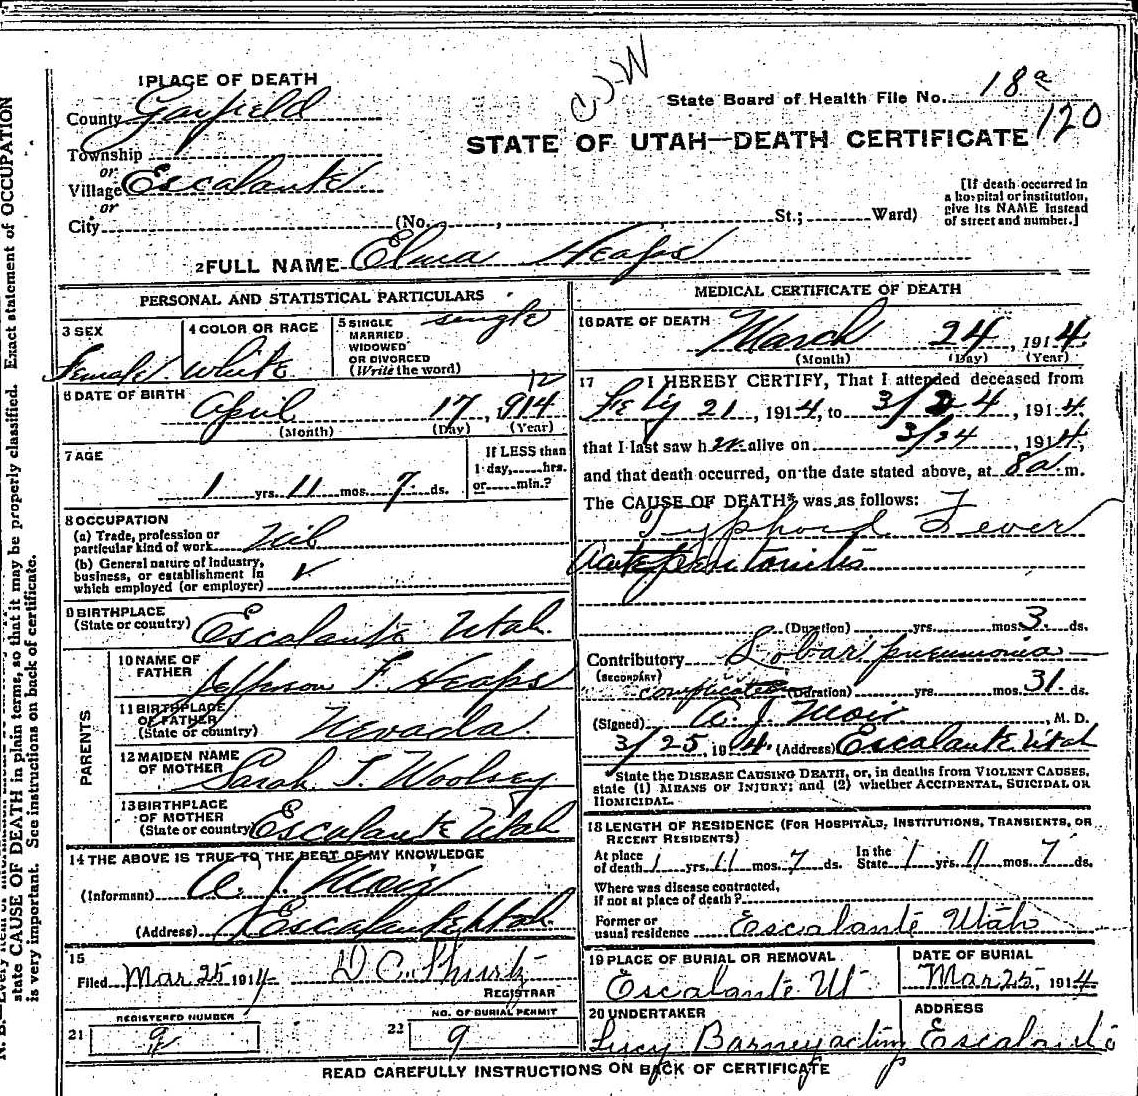 1 PLACE OF DEATH
County Garfield
Township
or
Village Escalante
or
City (No. , St.; Ward)
C.J.W
State Board of Health File No. 18a
120
STATE OF UTAH—DEATH CERTIFICATE
[If death occurred in
a hospital or institution,
give its NAME instead
of street and number.]
2 FULL NAME Elma Heaps
PERSONAL AND STATISTICAL PARTICULARS
3 SEX
Female
4 COLOR OR RACE
White
5 SINGLE
MARRIED
WIDOWED
OR DIVORCED
(Write the word)
single
6 DATE OF BIRTH
April 17, 914
12
(Month) (Day) (Year)
7 AGE
1 yrs. 11 mos. 7 ds.
If LESS than
1 day, hrs.
or min.?
8 OCCUPATION
(a) Trade, profession or
particular kind of work Nil
(b) General nature of industry,
business, or establishment in
which employed (or employer)
9 BIRTHPLACE
(State or country) Escalante Utah
PARENTS
10 NAME OF
FATHER Jefferson F. Heaps
11 BIRTHPLACE
OF FATHER
(State or country) Nevada.
12 MAIDEN NAME
OF MOTHER Sarah T. Woolsey
13 BIRTHPLACE
OF MOTHER
(State or country) Escalante Utah
14 THE ABOVE IS TRUE TO THE BEST OF MY KNOWLEDGE
(Informant) A. J. Moir
(Address) Escalante Utah
15
Filed Mar 25 1914 D C Shurtz
REGISTRAR
21 REGISTERED NUMBER
9
22 NO. OF BURIAL PERMIT
9
MEDICAL CERTIFICATE OF DEATH
16 DATE OF DEATH
March 24, 1914.
(Month) (Day) (Year)
17 I HEREBY CERTIFY, That I attended deceased from
Feby 21, 1914, to 3/24, 1914.
that I last saw her alive on 3/24, 1914,
and that death occurred, on the date stated above, at 8 a. m.
The CAUSE OF DEATH* was as follows:
Typhoid Fever
Acute peritonitis
(Duration) yrs. mos. 3. ds.
Contributory Lobar pneumonia
(SECONDARY)
complicated (Duration) yrs. mos. 31. ds.
(Signed) A. J. Moir, M. D.
3/25, 1914. (Address) Escalante Utah
*State the DISEASE CAUSING DEATH, or, in deaths from VIOLENT CAUSES,
state (1) MEANS OF INJURY; and (2) whether ACCIDENTAL, SUICIDAL OR
HOMICIDAL.
18 LENGTH OF RESIDENCE (FOR HOSPITALS, INSTITUTIONS, TRANSIENTS, OR
RECENT RESIDENTS)
At place
of death 1 yrs. 11 mos. 7 ds. In the
State 1 yrs. 11 mos. 7 ds.
Where was disease contracted,
if not at place of death?
Former or
usual residence Escalante Utah
19 PLACE OF BURIAL OR REMOVAL
Escalante Ut
DATE OF BURIAL
Mar 25, 1914
20 UNDERTAKER
Lucy Barney acting
ADDRESS
Escalante
READ CAREFULLY INSTRUCTIONS ON BACK OF CERTIFICATE
state CAUSE OF DEATH in plain terms, so that it may be properly classified. Exact statement of OCCUPATION
is very important. See instructions on back of certificate.